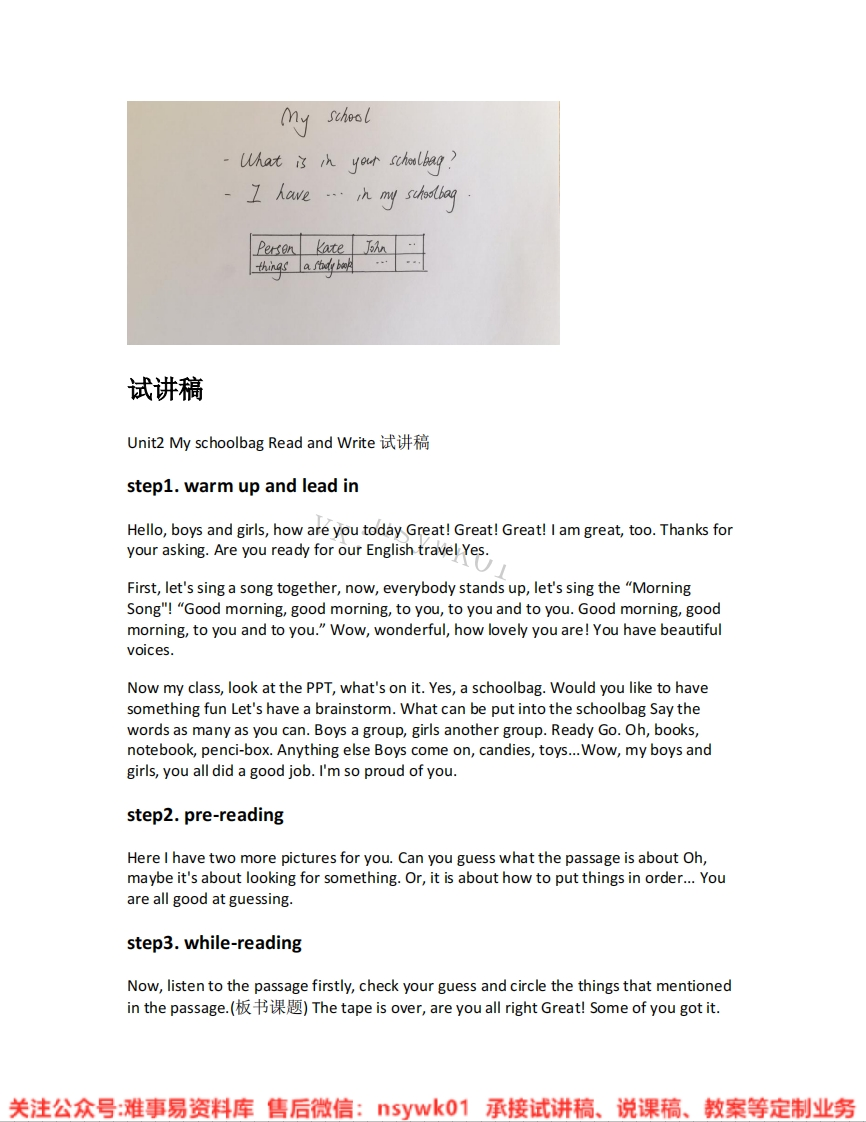 My school
- What is in your schoolbag?
- I have ... in my schoolbag.
Person Kate John ..
things a study book ... ...
试讲稿
Unit2 My schoolbag Read and Write 试讲稿
step1. warm up and lead in
Hello, boys and girls, how are you today Great! Great! Great! I am great, too. Thanks for
your asking. Are you ready for our English travel Yes.
First, let's sing a song together, now, everybody stands up, let's sing the “Morning
Song"! “Good morning, good morning, to you, to you and to you. Good morning, good
morning, to you and to you.” Wow, wonderful, how lovely you are! You have beautiful
voices.
Now my class, look at the PPT, what's on it. Yes, a schoolbag. Would you like to have
something fun Let's have a brainstorm. What can be put into the schoolbag Say the
words as many as you can. Boys a group, girls another group. Ready Go. Oh, books,
notebook, penci-box. Anything else Boys come on, candies, toys...Wow, my boys and
girls, you all did a good job. I'm so proud of you.
step2. pre-reading
Here I have two more pictures for you. Can you guess what the passage is about Oh,
maybe it's about looking for something. Or, it is about how to put things in order... You
are all good at guessing.
step3. while-reading
Now, listen to the passage firstly, check your guess and circle the things that mentioned
in the passage.(板书课题) The tape is over, are you all right Great! Some of you got it.
关注公众号:难事易资料库 售后微信：nsywk01 承接试讲稿、说课稿、教案等定制业务